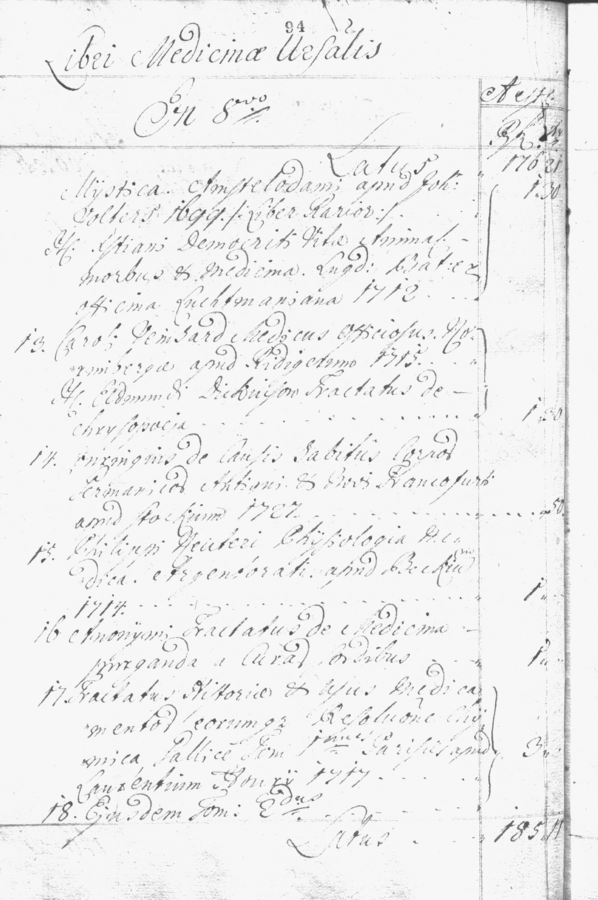 94
Libri Medicinæ Ursalis
In 8vo
Aest:
Latus 176 21
Mystica. Amstelodami apud Joh:
Wolters 1699 /: Liber Rarior :/ 1 30
It. Christiani Democriti Vitæ Animal.
morbus et Medicina. Lugd: Batt: ex
officina Luchtmaniana 1712
13. Medicus officiosus. No-
rimbergæ apud 1715.
It. Edmundi Dickinson Tractatus de
chrysopoeja 1 30
14. de Causis habitus Corpor
Germanicor Antiqui et Novi Francofurti
apud 1727 50
15. Physiologia Me-
dica. Argentorati. apud
1714 1
16 Anonymi Tractatus de Medicina
purganda a Curar Sordibus 1
17. Tractatus Historiæ et Usus Medica
mentor eorumqz Resoluone Chy-
mica, Gallice Tom 1mus Parisiis apud 3
Laurentium Houry 1717
18. Ejusdem Tom: 2dus
Latus 185 11